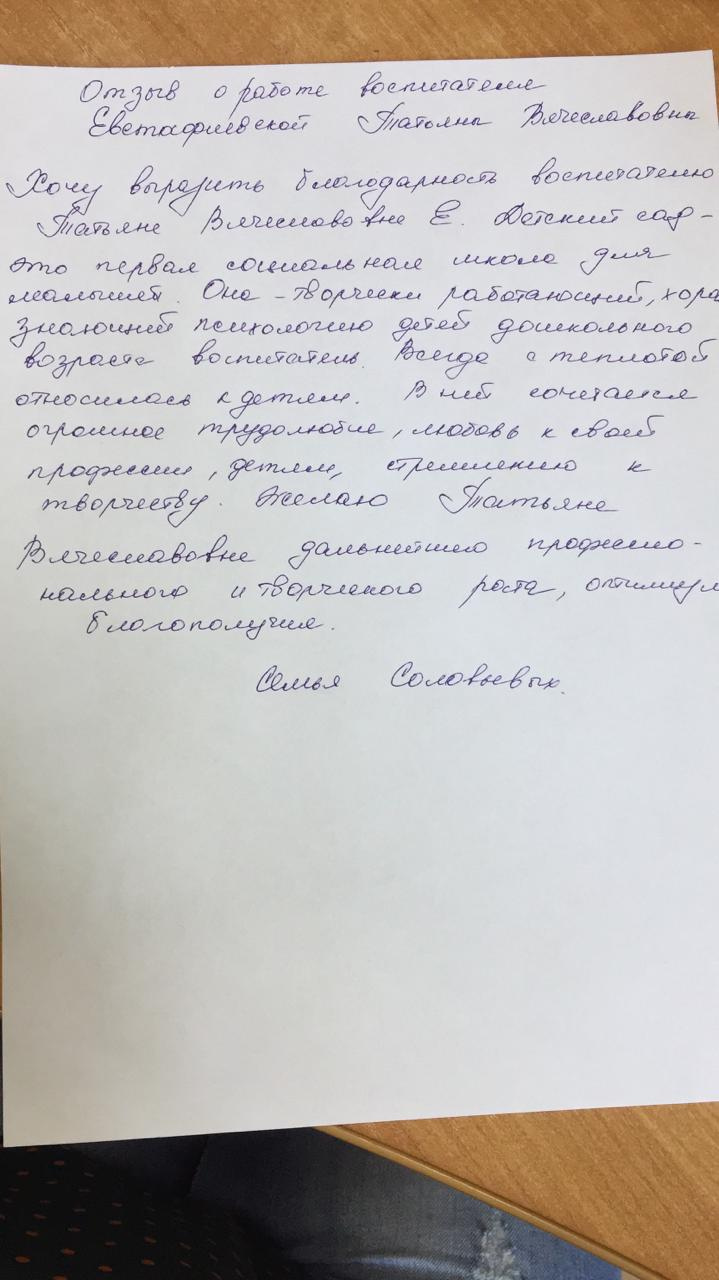 Отзыв о работе воспитателя
Евстафиевской Татьяны Вячеславовны
Хочу выразить благодарность воспитателю
Татьяне Вячеславовне Е. Детский сад -
это первая социальная школа для
малышей. Она - творчески работающий, хоро
знающий психологию детей дошкольного
возраста воспитатель. Всегда с теплотой
относилась к детям. В ней сочетается
огромное трудолюбие, любовь к своей
профессии, детям, стремлению к
творчеству. Желаю Татьяне
Вячеславовне дальнейшего професси-
нального и творческого роста, оптимизм
благополучия.
Семья Соловьевых.